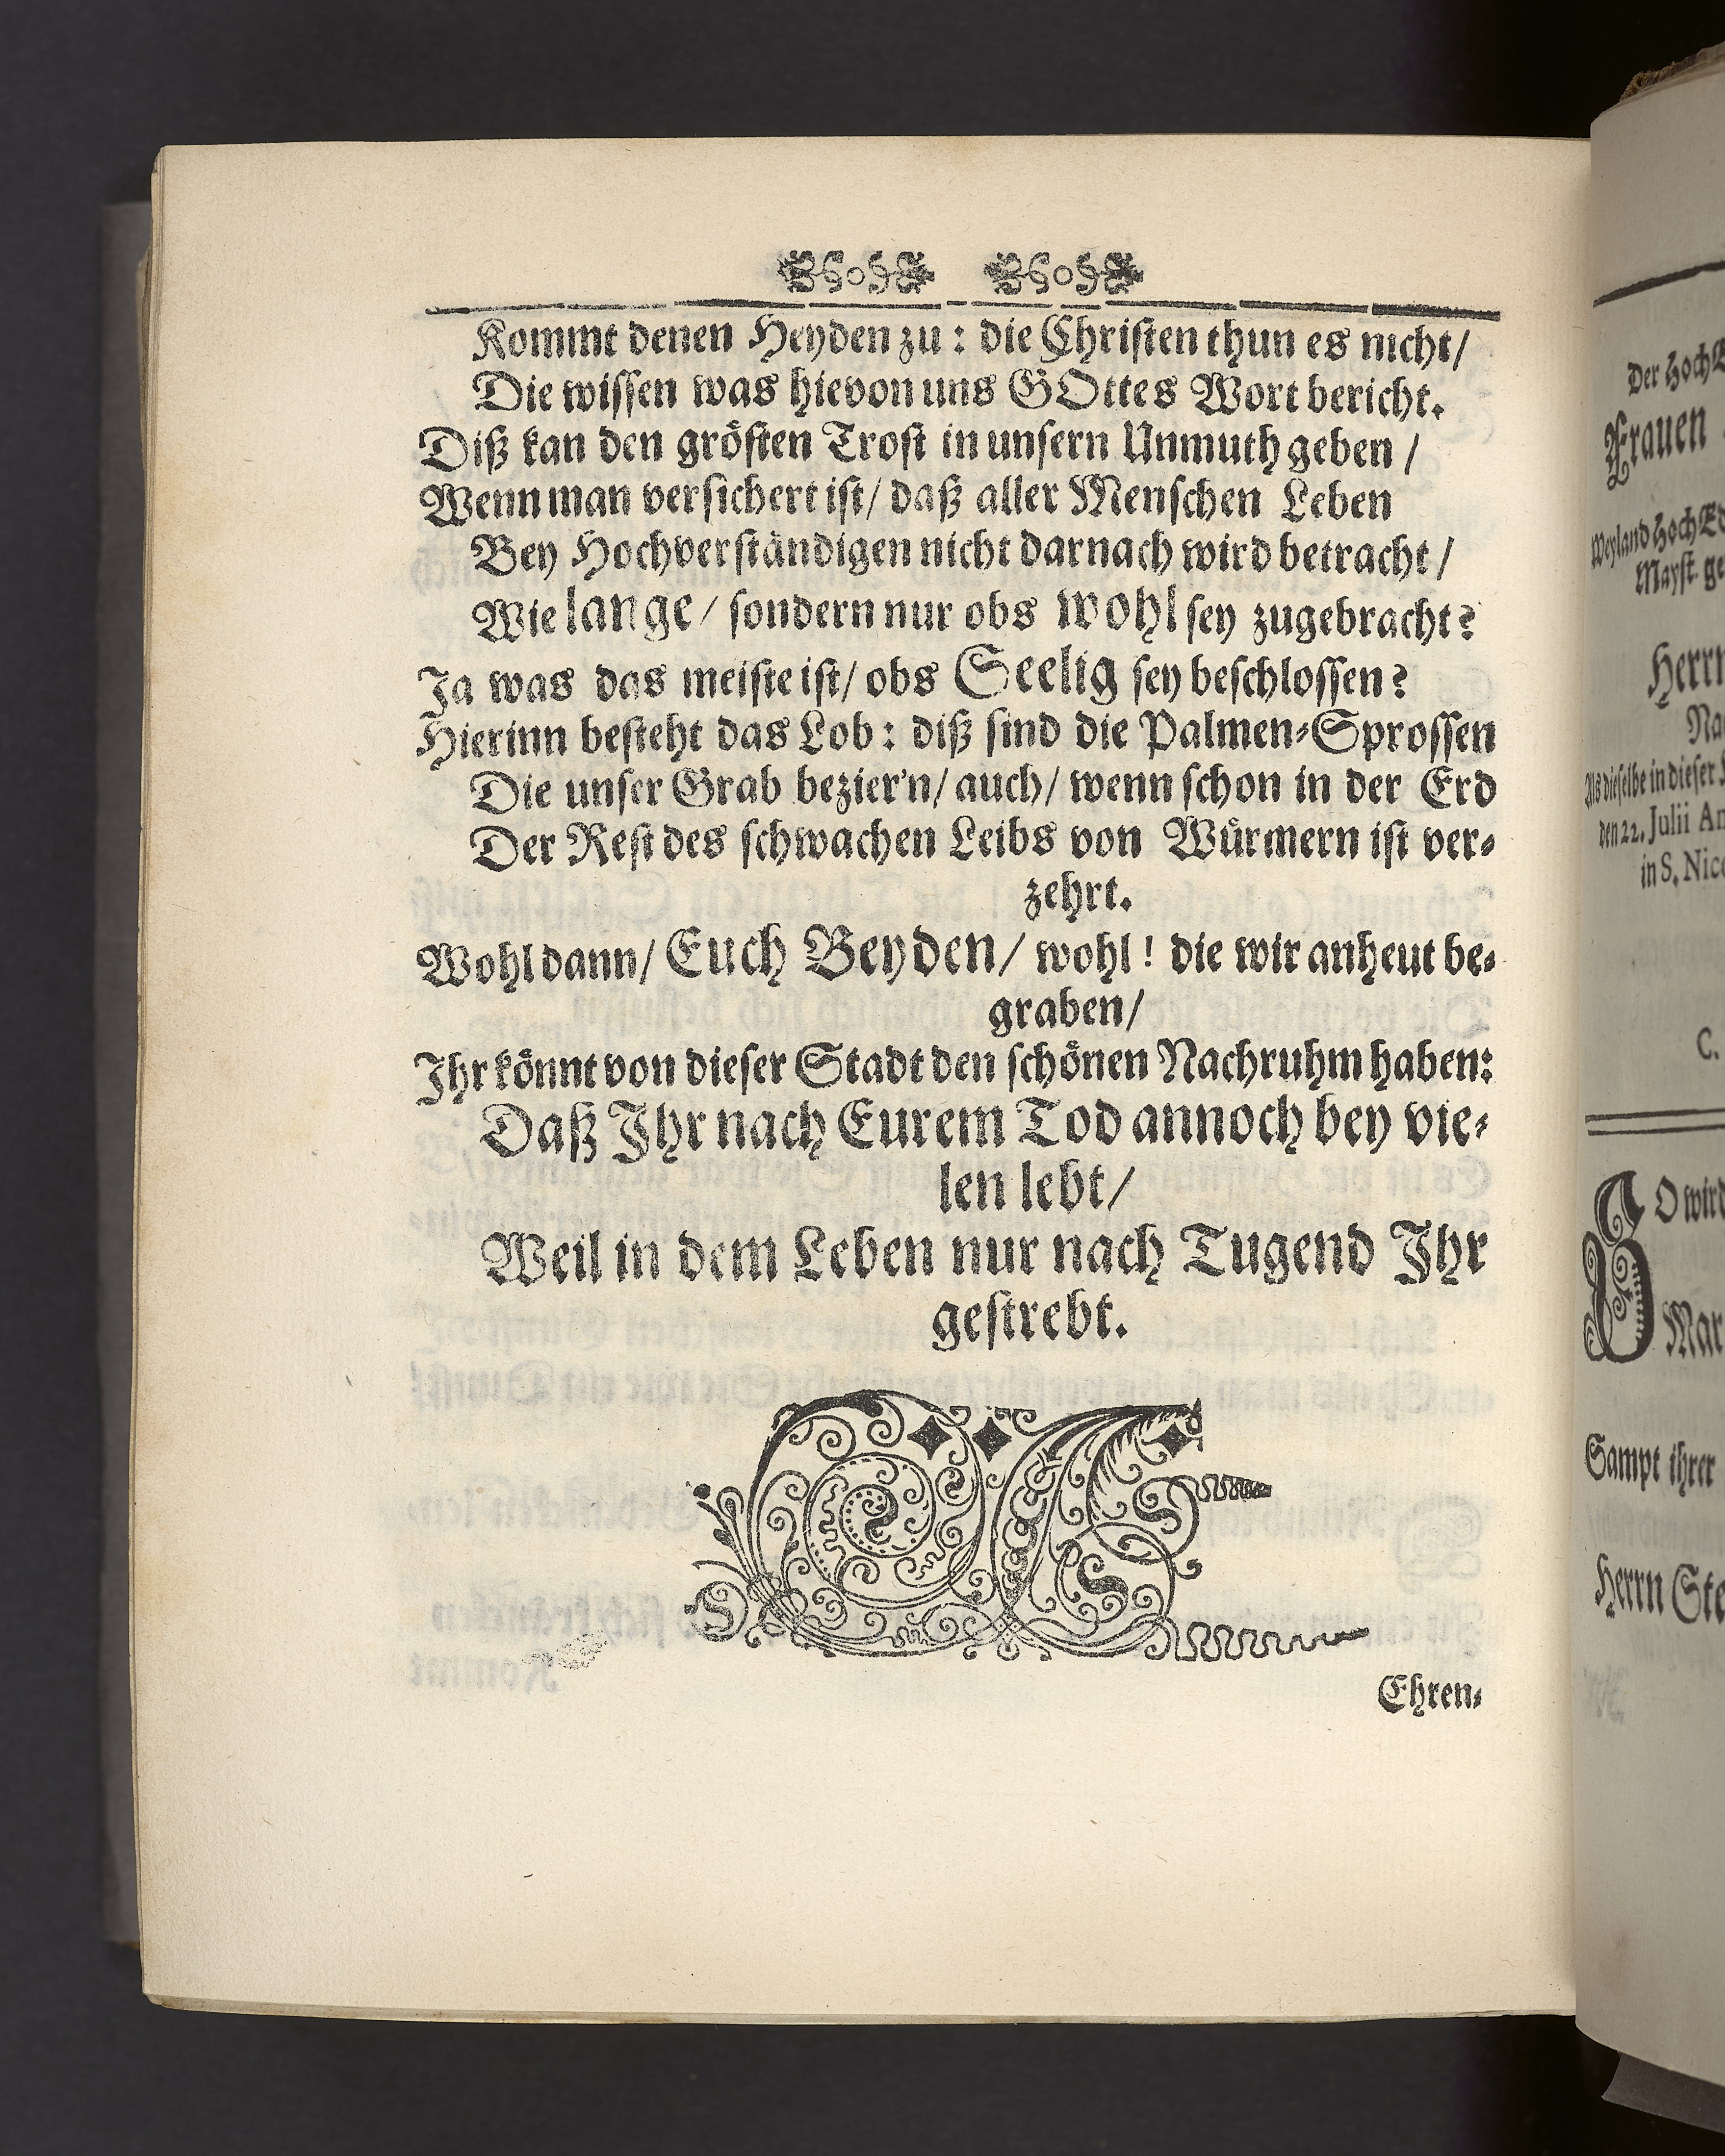 Kommt denen Heyden zu: die Christen thun es nicht/
Die wissen was hievon uns GOttes Wort bericht.
Diß kan den grösten Trost in unsern Unmuth geben/
Wenn man versichert ist/ daß aller Menschen Leben
Bey Hochverständigen nicht darnach wird betracht/
Wie lange/ sondern nur obs wohl sey zugebracht?
Ja was das meiste ist/ obs Seelig sey beschlossen?
Hierinn besteht das Lob: diß sind die Palmen-Sprossen
Die unser Grab bezier'n/ auch/ wenn schon in der Erd
Der Rest des schwachen Leibs von Würmern ist ver-
zehrt.
Wohl dann/ Euch Beyden/ wohl! die wir anheut be-
graben/
Ihr könnt von dieser Stadt den schönen Nachruhm haben:
Daß Ihr nach Eurem Tod annoch bey vie-
len lebt/
Weil in dem Leben nur nach Tugend Ihr
gestrebt.
Ehren-
Der HochE
Frauen
Weyland HochEd
Mayst. ge
Herrn
Na
Als dieselbe in dieser
den 22. Julii An
in S. Nico
C.
SO wird
Mar
Sampt ihrer
Herrn Ste